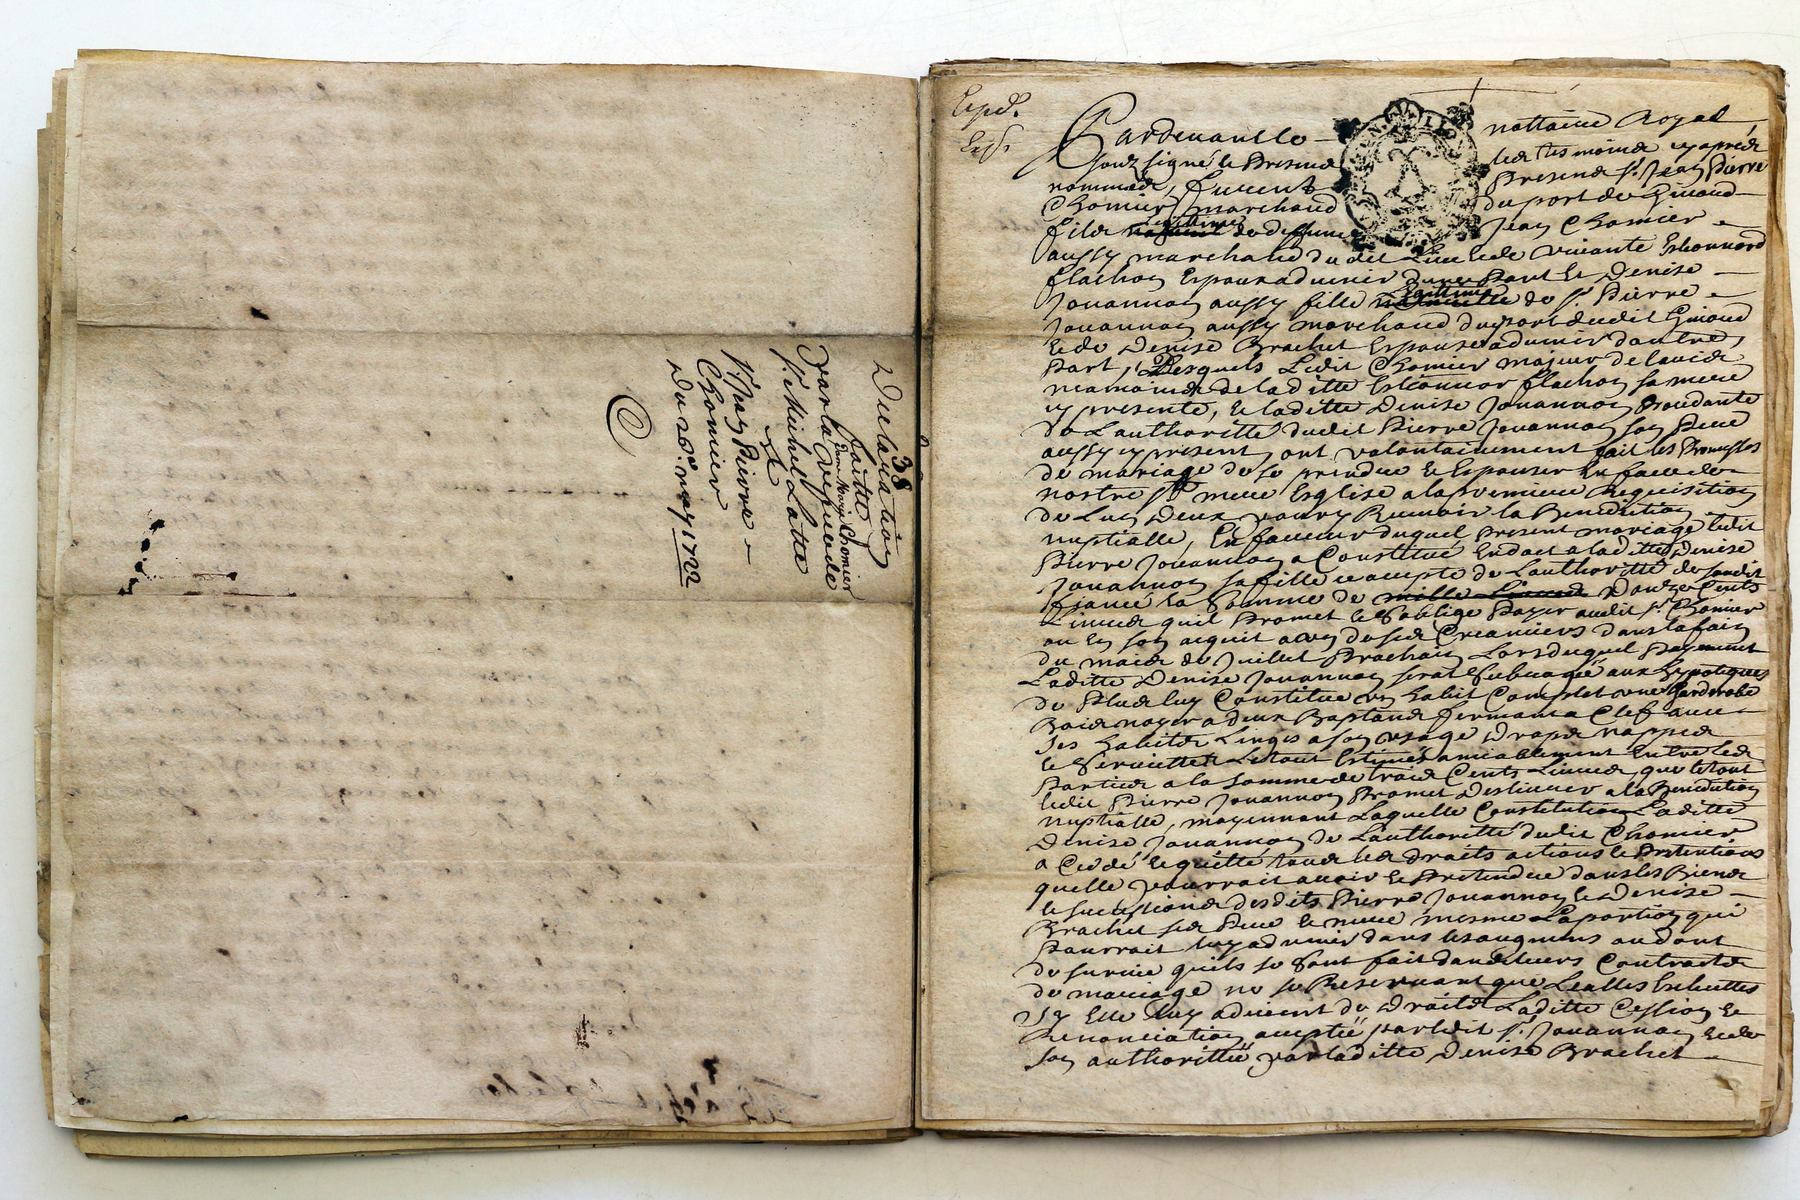 38
Declaration
faitte
par la vefve de
Sr. Michel Latte
et
Sr. Jean Pierre
Chomier
Du 26e. may 1722
Expdé.
Pardevant le nottaire Royal
soubsigné et presence des tesmoins cy apres
nommés, furent presens sr. Jean Pierre
Chomier marchand du port de Givord
fils legitime de deffunt Jean Chomier
aussy marchand dudit lieu et de vivante Esleonnord
flachon Espoux advenir d'une part Et Denise
Jouannon aussy fille legittime de sr. Pierre
Jouannon aussy marchand du port dudit Givord
et de Denise Brachet Espouse advenir d'autre
part, Lesquels Ledit Chomier majeur de
de laditte Esleonnor flachon sa mere
cy presente, et laditte Denise Jouannon procedante
de L'authoritté dudit Pierre Jouannon son Pere
aussy cy present, ont volontairement fait les Promesses
de mariage de se prendre et Espouser En face de
nostre ste mere Esglise a la premiere Requisition
de Lun Deux pour y Recevoir la Benediction
nuptialle, En faveur duquel present mariage ledit
Pierre Jouannon a Constitué En dot a laditte Denise
Jouannon sa fille ce acceptée de L'authoritté de sondit
fiancé la somme de mille Livres Douze Cents
Livres quil Promet et soblige Payer audit sr. Chomier
ou En son acquit a ses Creanciers dans la fin
du mois de Juillet Prochain Lors duquel Payement
Laditte Denise Jouannon serat subrogée aux hypoteques
de Plus luy Constitue un habit Complet une Garderobe
Bois noyer a deux Battans fermant a Clef avec
ses habits Linges a son usage Draps nappes
et serviettes Le tout Estimés amiablement Entre les
Parties a la somme de trois Cents Livres, que le tout
ledit Pierre Jouannon Promet Deslivrer a la Benediction
nuptialle, moyennant Laquelle Constitution Laditte
Denise Jouannon de L'authoritté dudit Chomier
a Cedé et quitté tous les droits actions et Pretentions
quelle pourrait avoir et Pretendre dans les Biens
et successions desdits Pierre Jouannon et Denise
Brachet ses Pere et mere mesme La portion qui
Pourrait luy advenir dans les augmens ou dont
de survie quils se sont fait dans leurs Contracts
de mariage ne se Reservant que Les
sy Elle luy advient de Droits Laditte Cession et
Renonciation acceptée par ledit sr. Jouannon et de
son authorittée par laditte Denise Brachet